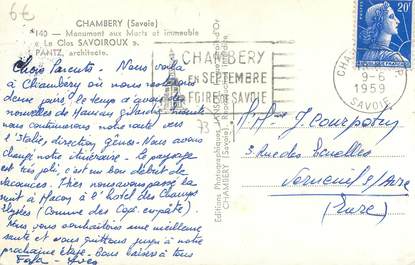 6€
CHAMBERY (Savoie)
140 - Monument aux Morts et immeuble
« Le Clos SAVOIROUX ».
PANTZ, architecte.
Chers Parents. Nous voilà
à Chambéry où nous restons
deux jours, le temps d'avoir des
nouvelles de
nous continuerons notre route vers
l'Italie, direction Gênes. Nous avons
changé notre itinéraire. Le paysage
est très joli, c'est un bon début de
vacances. Hier nous avons passé la
nuit à Macon à l'hôtel des Champs
Elysées (Comme des
Nous vous souhaitons une meilleure
santé et vous quittons jusqu'à notre
prochaine étape. Bons baisers à tous
73
Editions Photographiques
CHAMBERY (Savoie)
CHAMBERY
EN SEPTEMBRE
FOIRE DE SAVOIE
20F
9-6
1959
SAVOIE
3 Rue des
Verneuil s/Avre
(Eure)